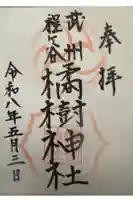 奉拝
武州
程ヶ谷
橘樹神社
令和八年五月三日